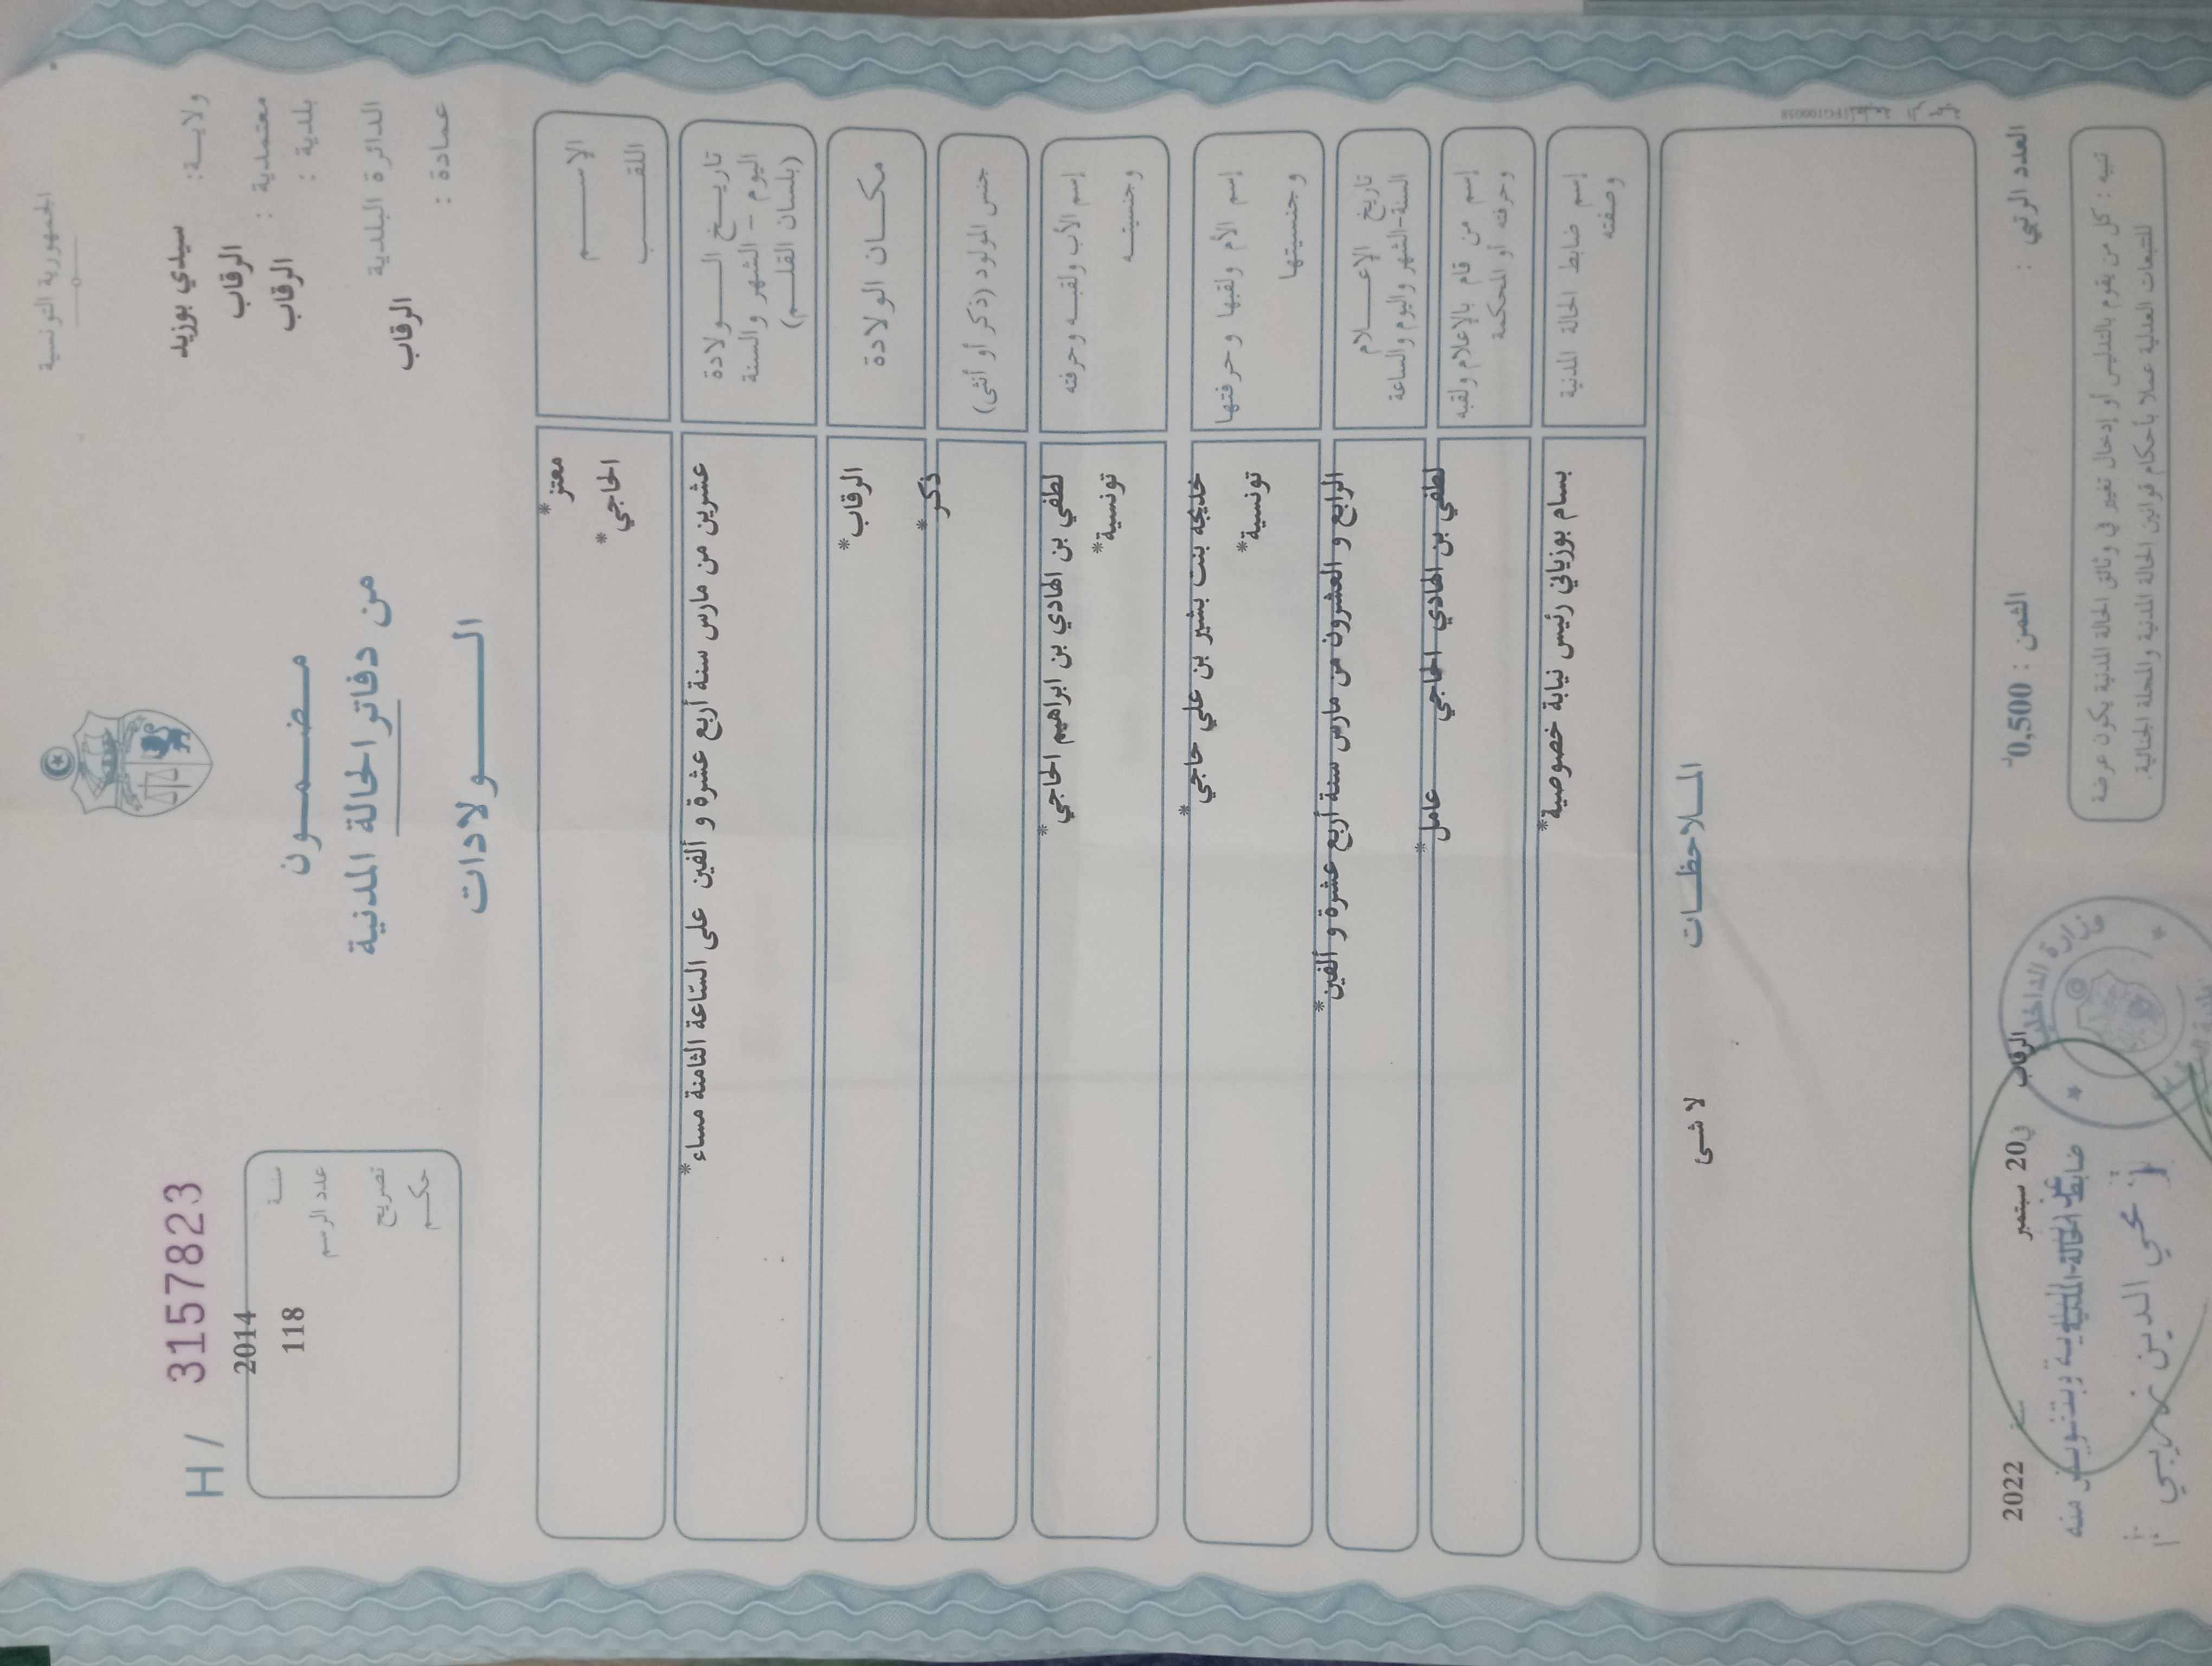 الجمهورية التونسية
ولايــة: سيدي بوزيد
معتمدية : الرقاب
بلدية : الرقاب
الدائرة البلدية
الرقاب
عمادة :
H / 3157823
سنــة 2014
عدد الرسم 118
تصريح
حكــم
مـضـمــون
من دفاتر الحالة المدنية
الــولادات
الإســـم
معتز*
اللقـــب
الحاجي*
تاريــخ الــولادة
اليوم - الشهر والسنة
(بلسان القلــم)
عشرين من مارس سنة أربع عشرة و ألفين على السّاعة الثامنة مساء*
مكــان الولادة
الرقاب*
جنس المولود (ذكر أو أنثى)
ذكر*
إسم الأب ولقبــه وحرفته
لطفي بن الهادي بن ابراهيم الحاجي*
وجنسيتــه
تونسية*
إسم الأم ولقبها وحرفتها
خديجه بنت بشير بن علي حاجي*
وجنسيتها
تونسية*
تاريخ الإعــلام
السنة-الشهر واليوم والساعة
الرابع و العشرون من مارس سنة أربع عشرة و ألفين*
إسم من قام بالإعلام ولقبه
وحرفته أو المحكمة
لطفي بن الهادي الحاجي عامل*
إسم ضابط الحالة المدنية
وصفته
بسام بوزياني رئيس نيابة خصوصية*
المــلاحظــات
لا شئ
العدد الرتبي :
الثمن : 0,500د
الرقاب في 20 سبتمبر سنة 2022
تنبيه : كل من يقوم بالتدليس أو إدخال تغيير في وثائق الحالة المدنية يكون عرضة
للتتبعات العدلية عملا بأحكام قوانين الحالة المدنية والمجلة الجنائية.
وزارة الداخلية
ضابط الحالة المدنية وبتفويض منه